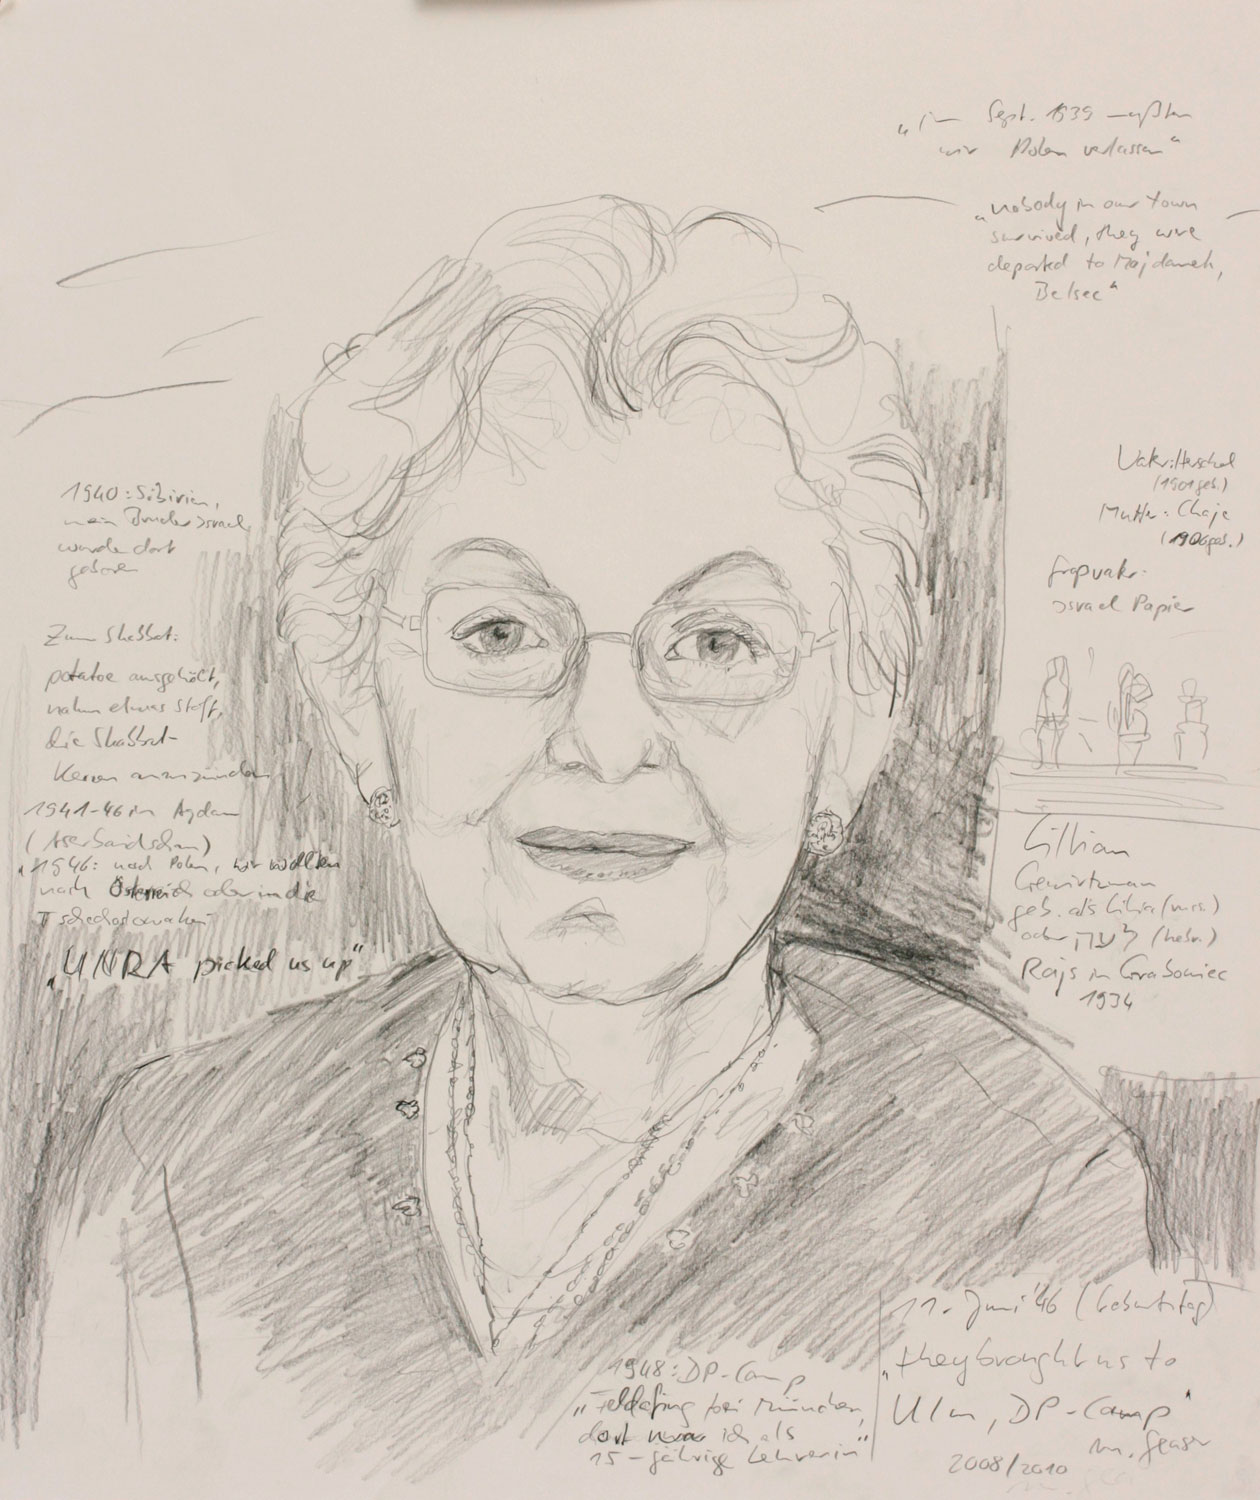 „Im Sept. 1939 mußten
wir Polen verlassen“
„nobody in our town
survived, they were
deported to Majdanek,
Belsec“
Vater: Herschel
(1901 geb.)
Mutter: Chaje
(1906 geb.)
Großvater:
Israel Papier
1940: Sibirien,
mein Bruder Israel
wurde dort
geboren
Zum Shabbat:
potatoe ausgehölt,
nahm etwas Stoff,
die Shabbat-
Kerzen anzuzünden
1941-46 in Agdam
(Aserbaidschan)
„1946: nach Polen, wir wollten
nach Österreich oder in die
Tschechoslowakei
„UNRA picked us up“
Lillian
Gewirtzman
geb. als Lilia (russ.)
oder (hebr.)
Rajs in Grabowiec
1934
1948: DP-Camp
„Feldafing bei München,
dort war ich als
15-jährige Lehrerin“
11. Juni '46 (Geburtstag)
„they brought us to
Ulm, DP-Camp“
2008/2010